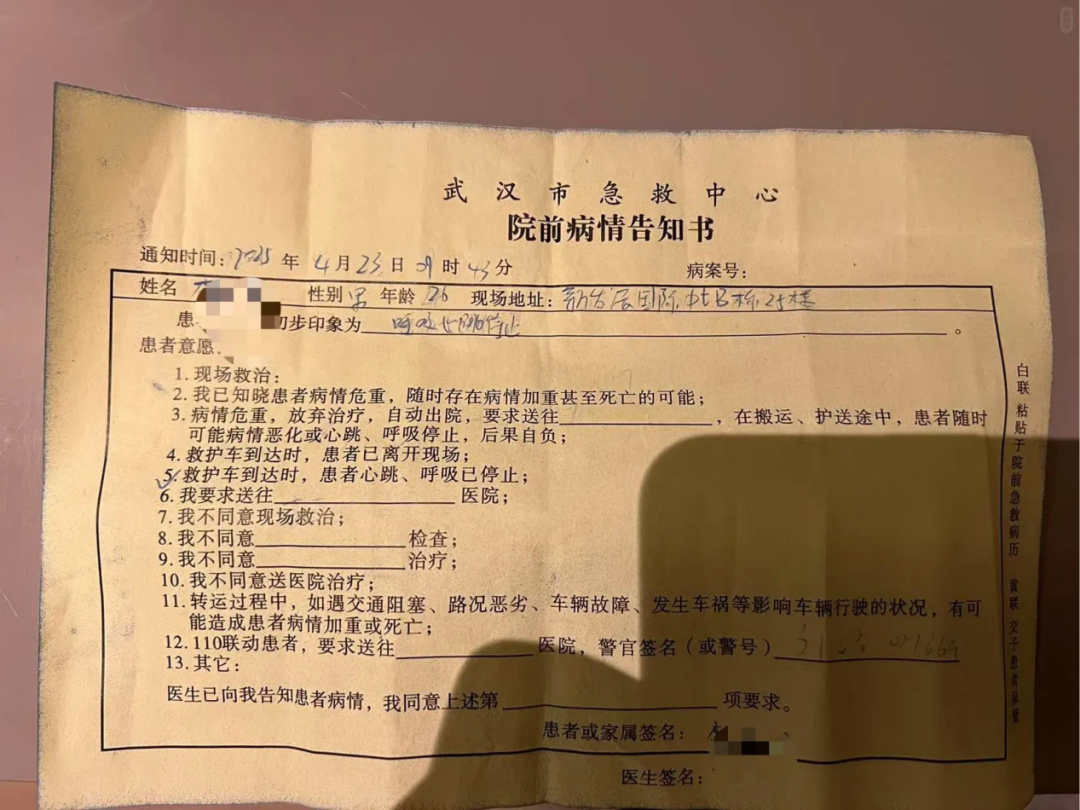 武汉市急救中心
院前病情告知书
通知时间:2025年4月23日09时43分 病案号:
姓名 性别 男 年龄 26 现场地址:新发展国际中心B栋25楼
患 初步印象为 呼吸心跳停止。
患者意愿
1. 现场救治:
2. 我已知晓患者病情危重,随时存在病情加重甚至死亡的可能;
3. 病情危重,放弃治疗,自动出院,要求送往,在搬运、护送途中,患者随时
可能病情恶化或心跳、呼吸停止,后果自负;
4. 救护车到达时,患者已离开现场;
✓5. 救护车到达时,患者心跳、呼吸已停止;
6. 我要求送往 医院;
7. 我不同意现场救治;
8. 我不同意 检查;
9. 我不同意 治疗;
10. 我不同意送医院治疗;
11. 转运过程中,如遇交通阻塞、路况恶劣、车辆故障、发生车祸等影响车辆行驶的状况,有可
能造成患者病情加重或死亡;
12. 110联动患者,要求送往 医院,警官签名(或警号)
13. 其它:
医生已向我告知患者病情,我同意上述第 项要求。
患者或家属签名:
医生签名:
白联 粘贴于院前急救病历 黄联 交予患者保管